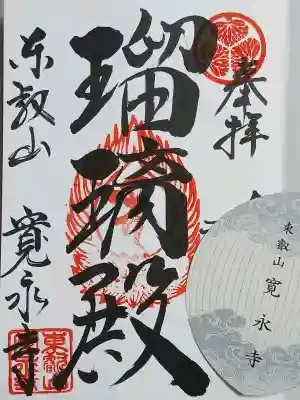 奉拝
瑠璃殿
東叡山 寛永寺
東叡山
寛永寺